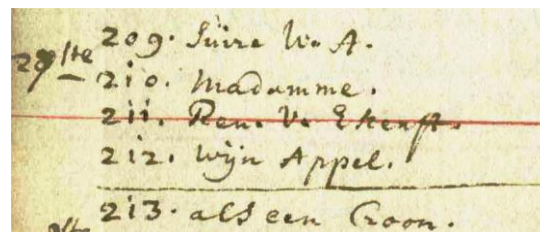 209. Süire W. A.
29ste
210. Madamme.
211. Ren. V. Ekenst.
212. Wijn Appel.
213. als een Croon.